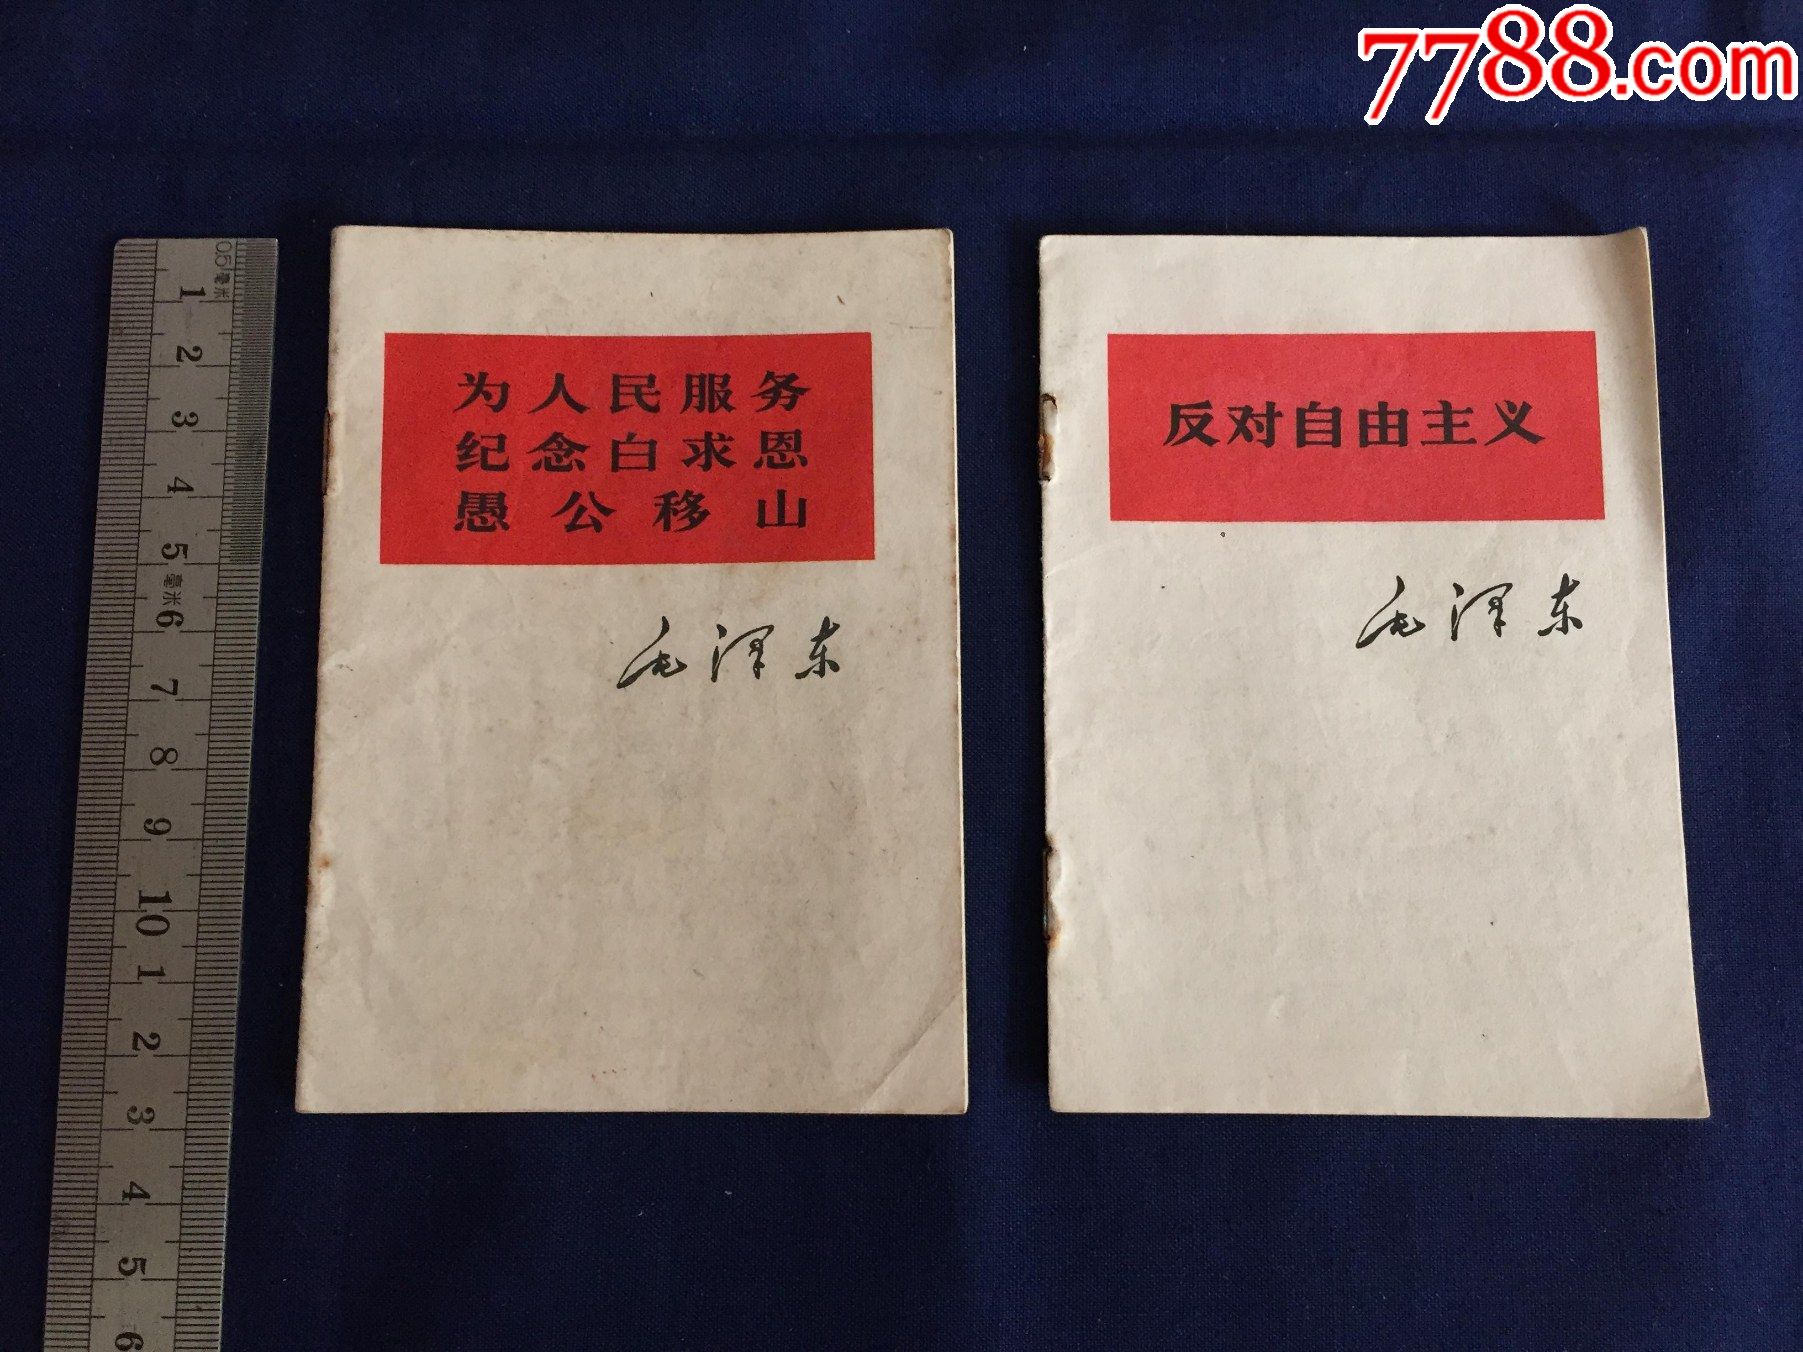 7788.com
为人民服务
纪念白求恩
愚公移山
毛泽东
反对自由主义
毛泽东
0.5毫米
1
2
3
4
5
毫米
6
7
8
9
10
1
2
3
4
5
6